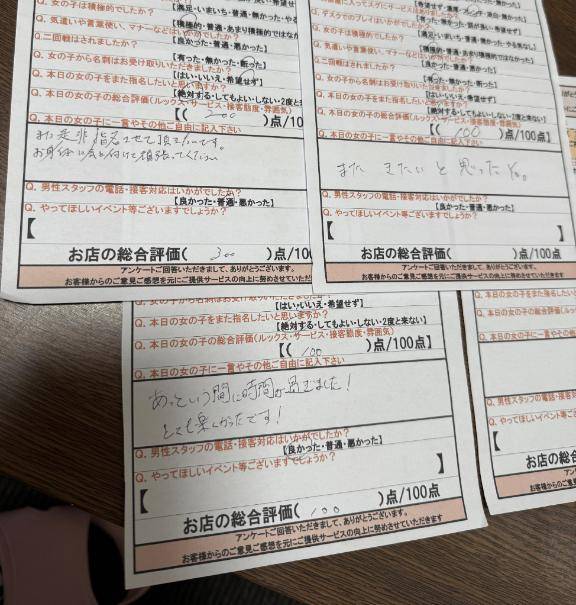 Q. 女の子は積極的でしたか?
【満足・いまいち・普通・悪かった・やる
【積極的・普通・あまり積極的ではなか
Q. 気遣いや言葉使い、マナーなどはいかがでしたか?
【満足・いまいち・普通・悪かった】
Q.二回戦はされましたか?
【良かった・普通・悪かった】
Q. 女の子から名刺はお受け取りいただきましたか?
【有った・無かった・断った】
Q. 本日の女の子をまた指名したいと思いますか?
【はい・いいえ・希望せず】
【絶対する・してもよい・しない・2度と
Q. 本日の女の子の総合評価(ルックス・サービス・接客態度・雰囲気)
【( 200 )点/10
Q. 本日の女の子に一言やその他ご自由に記入下さい
また是非指名させて頂きたいです。
お身体に気を付けて頑張ってください
Q. 男性スタッフの電話・接客対応はいかがでしたか?
【良かった・普通・悪かった】
Q. やってほしいイベント等ございますでしょうか?
【
お店の総合評価( 300 )点/10
アンケートご回答いただきまして、ありがとうございます。
お客様からのご意見ご感想を元にご提供サービスの向上に努めさせていただ
Q. デスクでのプレイはいかがでしたか?
【満足・いまいち・普通・悪かった・やる気なし】
Q. 気遣いや言葉使い、マナーなどはいかがでしたか?
【積極的・普通・あまり積極的ではなかった】
Q.二回戦はされましたか?
【満足・いまいち・普通・悪かった】
【良かった・普通・悪かった】
Q. 女の子から名刺はお受け取りいただきましたか?
【有った・無かった・断った】
Q. 本日の女の子をまた指名したいと思いますか?
【はい・いいえ・希望せず】
【絶対する・してもよい・しない・2度と来ない】
Q. 本日の女の子の総合評価(ルックス・サービス・接客態度・雰囲気)
【( 100 )点/100点】
Q. 本日の女の子に一言やその他ご自由に記入下さい
また きたいと思った。
Q. 男性スタッフの電話・接客対応はいかがでしたか?
【良かった・普通・悪かった】
Q. やってほしいイベント等ございますでしょうか?
【 】
お店の総合評価( )点/100点
アンケートご回答いただきまして、ありがとうございます。
お客様からのご意見ご感想を元にご提供サービスの向上に努めさせていただきます
Q. 女の子から名刺はお受け取りいただきましたか?
【はい・いいえ・希望せず】
Q. 本日の女の子をまた指名したいと思いますか?
【絶対する・してもよい・しない・2度と来ない】
Q. 本日の女の子の総合評価(ルックス・サービス・接客態度・雰囲気)
【( 100 )点/100点】
Q. 本日の女の子に一言やその他ご自由に記入下さい
あっという間に時間が過ぎました!
とても楽しかったです!
Q. 男性スタッフの電話・接客対応はいかがでしたか?
【良かった・普通・悪かった】
Q. やってほしいイベント等ございますでしょうか?
【 】
お店の総合評価( 100 )点/100点
アンケートご回答いただきまして、ありがとうございます。
お客様からのご意見ご感想を元にご提供サービスの向上に努めさせていただきます
Q. 本日の
Q. 本日の
Q. 本日の女
Q. 男性スタッフ
Q. やってほしい
【
お店の総合
アンケートご
お客様からのご意見ご